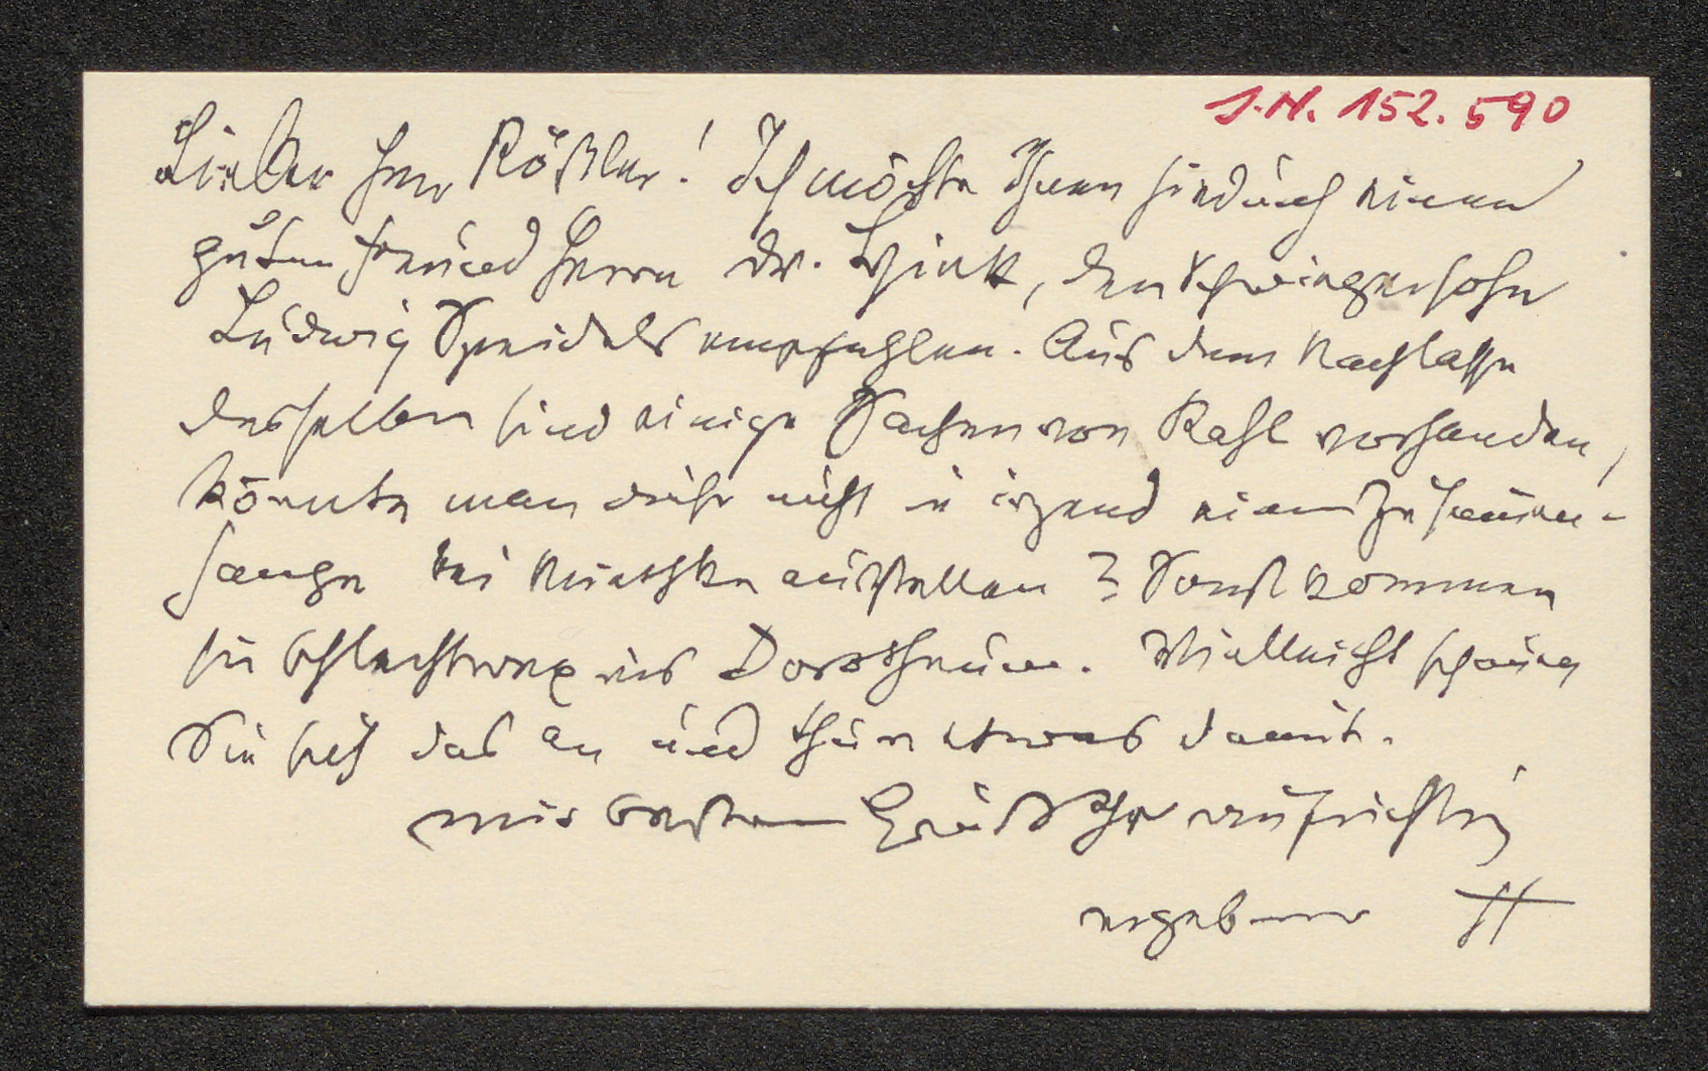 J.N. 152.590
Lieber Herr Rößler! Ich möchte Ihnen hiedurch einen
guten Freund Herrn Dr. den Schwiegersohn
Ludwig Speidels empfehlen. Aus dem Nachlasse
desselben sind einige Sachen von Rahl vorhanden,
könnte man diese nicht in irgend einem Zusammen-
hange bei Miethke ausstellen? Sonst kommen
sie schlechtweg ins Dorotheum. Vielleicht schauen
Sie sich das an und thun etwas damit.
mit bestem Gruß Ihr aufrichtig
ergebener